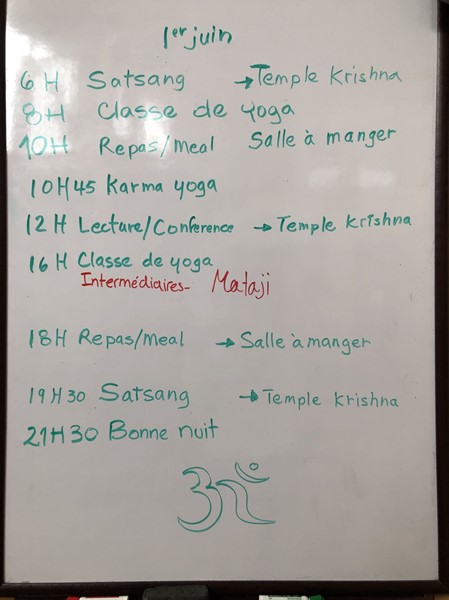 1er juin
6H Satsang → Temple Krishna
8H Classe de yoga
10H Repas/Meal Salle à manger
10H45 Karma yoga
12H Lecture/Conference → Temple Krishna
16H Classe de yoga
Intermédiaires- Mataji
18H Repas/Meal → Salle à manger
19H30 Satsang → Temple Krishna
21H30 Bonne nuit
ॐ